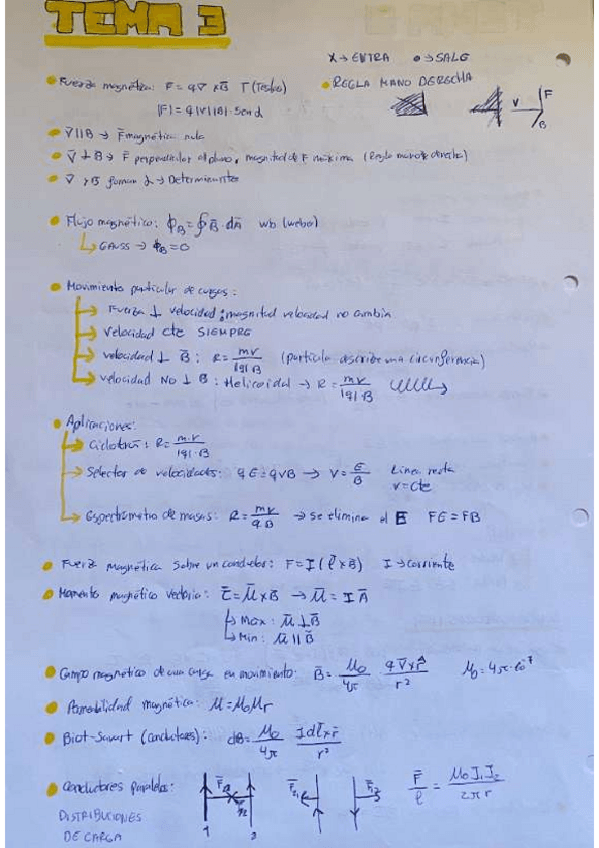 TEMA 3
X → ENTRA • → SALE
• Fuerza magnética: F = q v̄ x B̄ T (Tesla) • REGLA MANO DERECHA
|F| = q|V||B| · Sen α
V F B
• V̄ || B → F̄ magnética nula
• V̄ ⊥ B → F̄ perpendicular al plano, magnitud de F máxima (Regla mano derecha)
• V̄ y B forman α → Determinante
• Flujo magnético: ϕB = ∮ B̄ · dĀ wb (weber)
↳ GAUSS → ϕB = 0
• Movimiento partículas de cargas:
→ Fuerza ⊥ velocidad: magnitud velocidad no cambia
→ Velocidad cte SIEMPRE
→ velocidad ⊥ B̄: R = mv / |q|·B (partícula describe una circunferencia)
→ velocidad NO ⊥ B: Helicoidal → R = mv / |q|·B
• Aplicaciones:
→ Ciclotrón: R = m·v / |q|·B
→ Selector de velocidades: qE = qvB → V = E / B Línea recta
v = cte
→ Espectrómetro de masas: R = mv / q·B → se elimina el E FE = FB
• Fuerza magnética sobre un conductor: F = I (l̄ x B̄) I → corriente
• Momento magnético vectorial: τ̄ = μ̄ x B̄ → μ̄ = I Ā
↳ Max: μ̄ ⊥ B̄
↳ Min: μ̄ || B̄
• Campo magnético de una carga en movimiento: B̄ = μ0 / 4π · q v̄ x r̂ / r² μ0 = 4π·10⁻⁷
• Permeabilidad magnética: μ = μ0 μr
• Biot-Savart (conductores): dB = μ0 / 4π I dl̄ x r̄ / r²
• Conductores paralelos: F̄ / l = μ0 I1 I2 / 2π r
1 2
DISTRIBUCIONES
DE CARGA